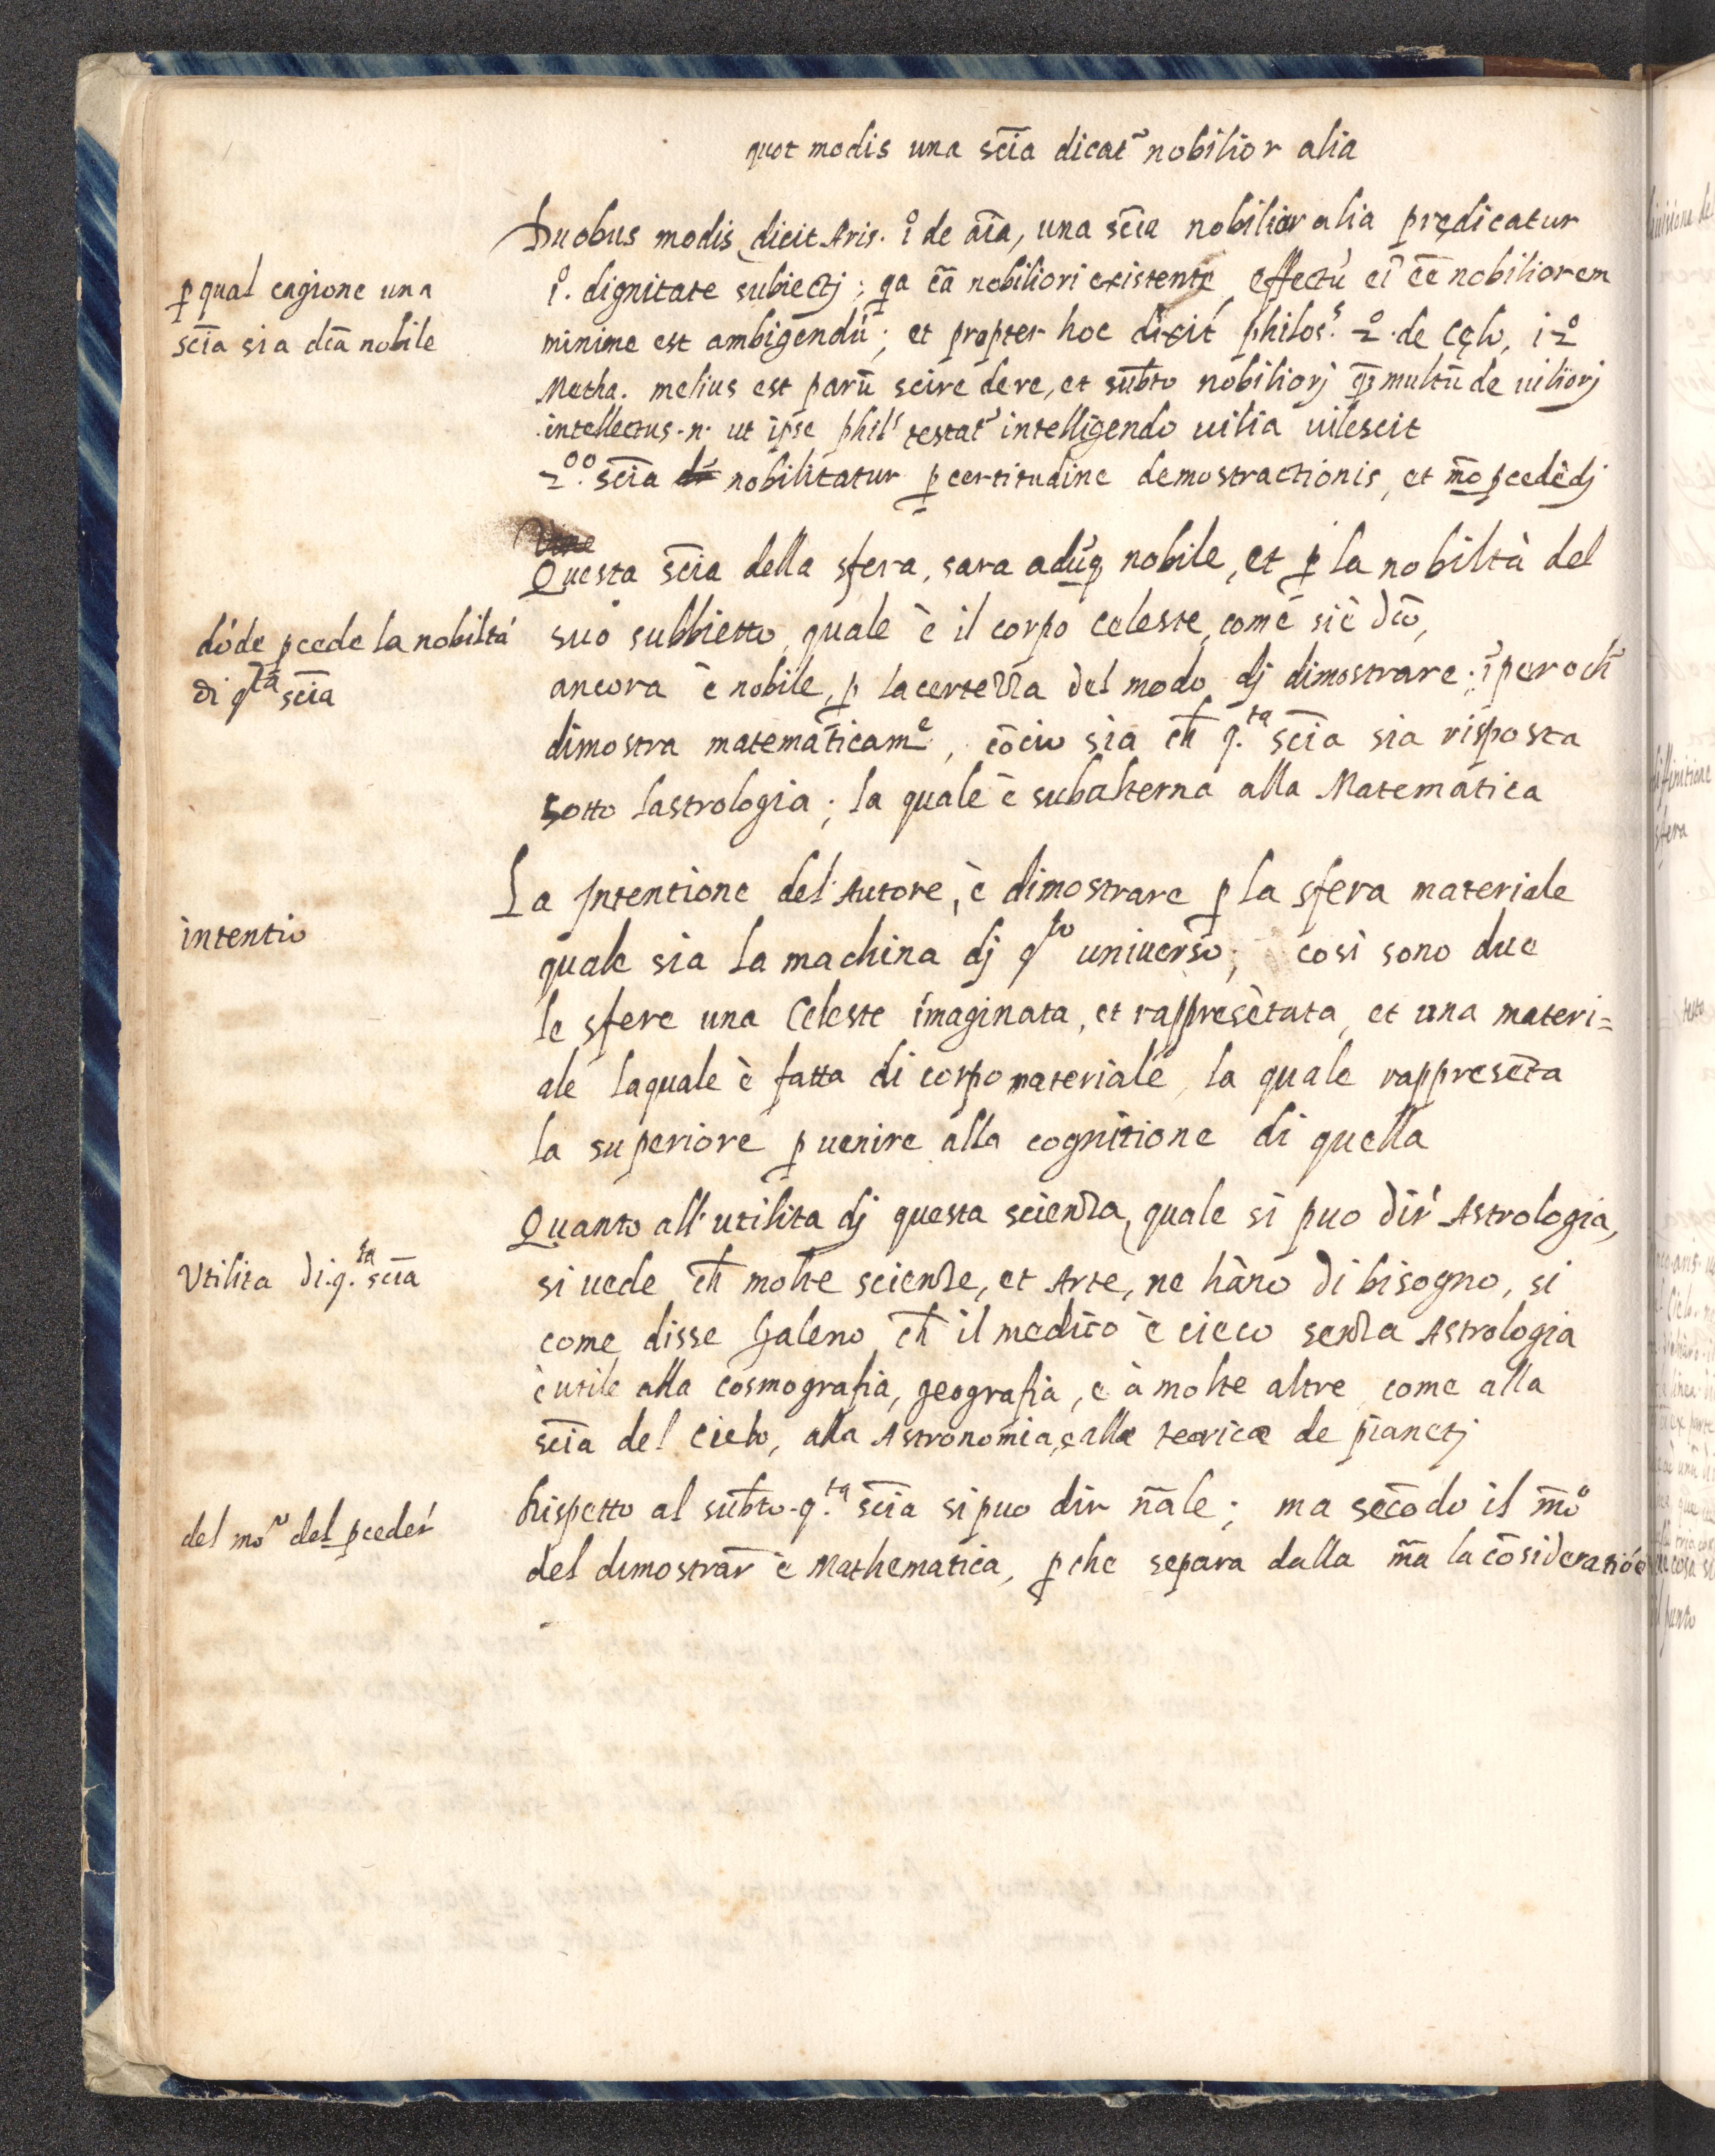 quot modis una scīa dicat̃ nobilior alia
Duobus modis dicit Aris. i° de aīa, una scīa nobilior alia prędicatur
p̱ qual cagione una
scīa sia dc̄a nobile
i°. dignitate subiectj; qa cā nobiliori existente effectū ei ēe nobiliorem
minime est ambigendū; et propter hoc dixit philos.s 2°. de Cęlo, i 2°
Metha. melius est parū scire de re, et sub̄to nobiliorj q̄3 multū de uiliorj
intellectus .n. ut ipse phils testat̃ intelligendo uilia uilescit
2°° scīa nobilitatur p̱ certitudine demostractionis, et m̄o pcedēdj
Questa scīa della sfera, sara adūq nobile, et p̱ la nobiltà del
dōde pcede la nobiltá
di qta scīa
suo subbietto, quale è il corpo celeste, come si è dc̄o,
ancora è nobile, p̱ la certezza del modo dj dimostrare; īperoch̄
dimostra matematicame, cōcio sia ch̄ q.ta scīa sia risposta
sotto lastrologia; la quale è subalterna alla Matematica
intentio
La Intentione del Autore, è dimostrare p̱ la sfera materiale
quale sia la machina dj qto uniuerso; cosi sono due
le sfere una Celeste imaginata, et rappresētata, et una materi=
ale laquale è fatta di corpo materiale, la quale rappresēta
la superiore p̱ uenire alla cognitione di quella
Vtilita di.q.ta scīa
Quanto all'utilita dj questa scienza, quale si puo dir' Astrologia,
si uede ch̄ molte scienze, et Arte, ne hāno di bisogno, si
come disse Galeno ch̄ il medico è cieco senza Astrologia
è utile alla cosmografia, geografia, e à molte altre come alla
scīa del Cielo, alla Astronomia, e alla teorica de pianetj
del mo° del pceder'
Rispetto al sub̄to q.ta scīa si puo dir n̄ale; ma secōdo il m̄o°
del dimostrar̄ è Mathematica, p̱che separa dalla m̄a la cōsideratiōe